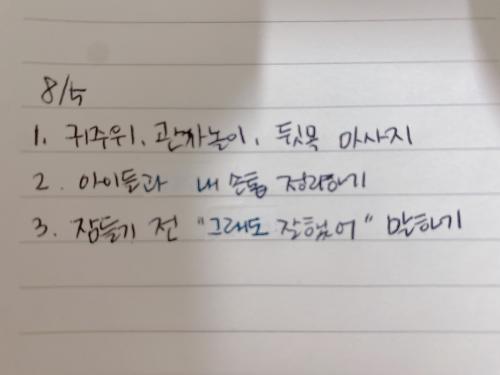 8/5
1. 귀주위, 관자놀이, 뒷목 마사지
2. 아이들과 내 손톱 정리하기
3. 잠들기 전 "그래도 잘했어" 말하기